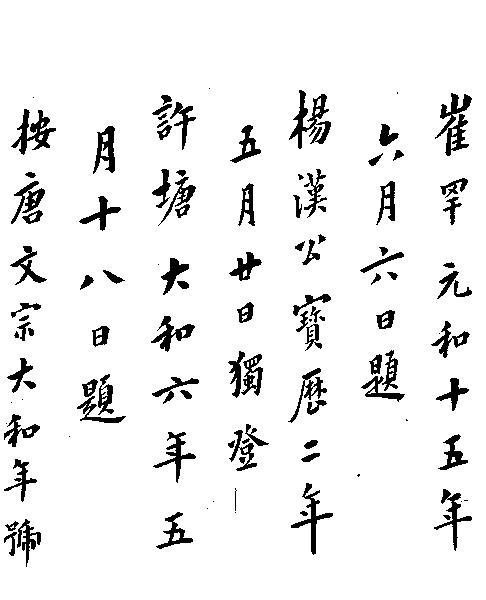 崔罕元和十五年
六月六日題
楊漢公寶歷二年
五月廿日獨登
許塘大和六年五
月十八日題
按唐文宗大和年號